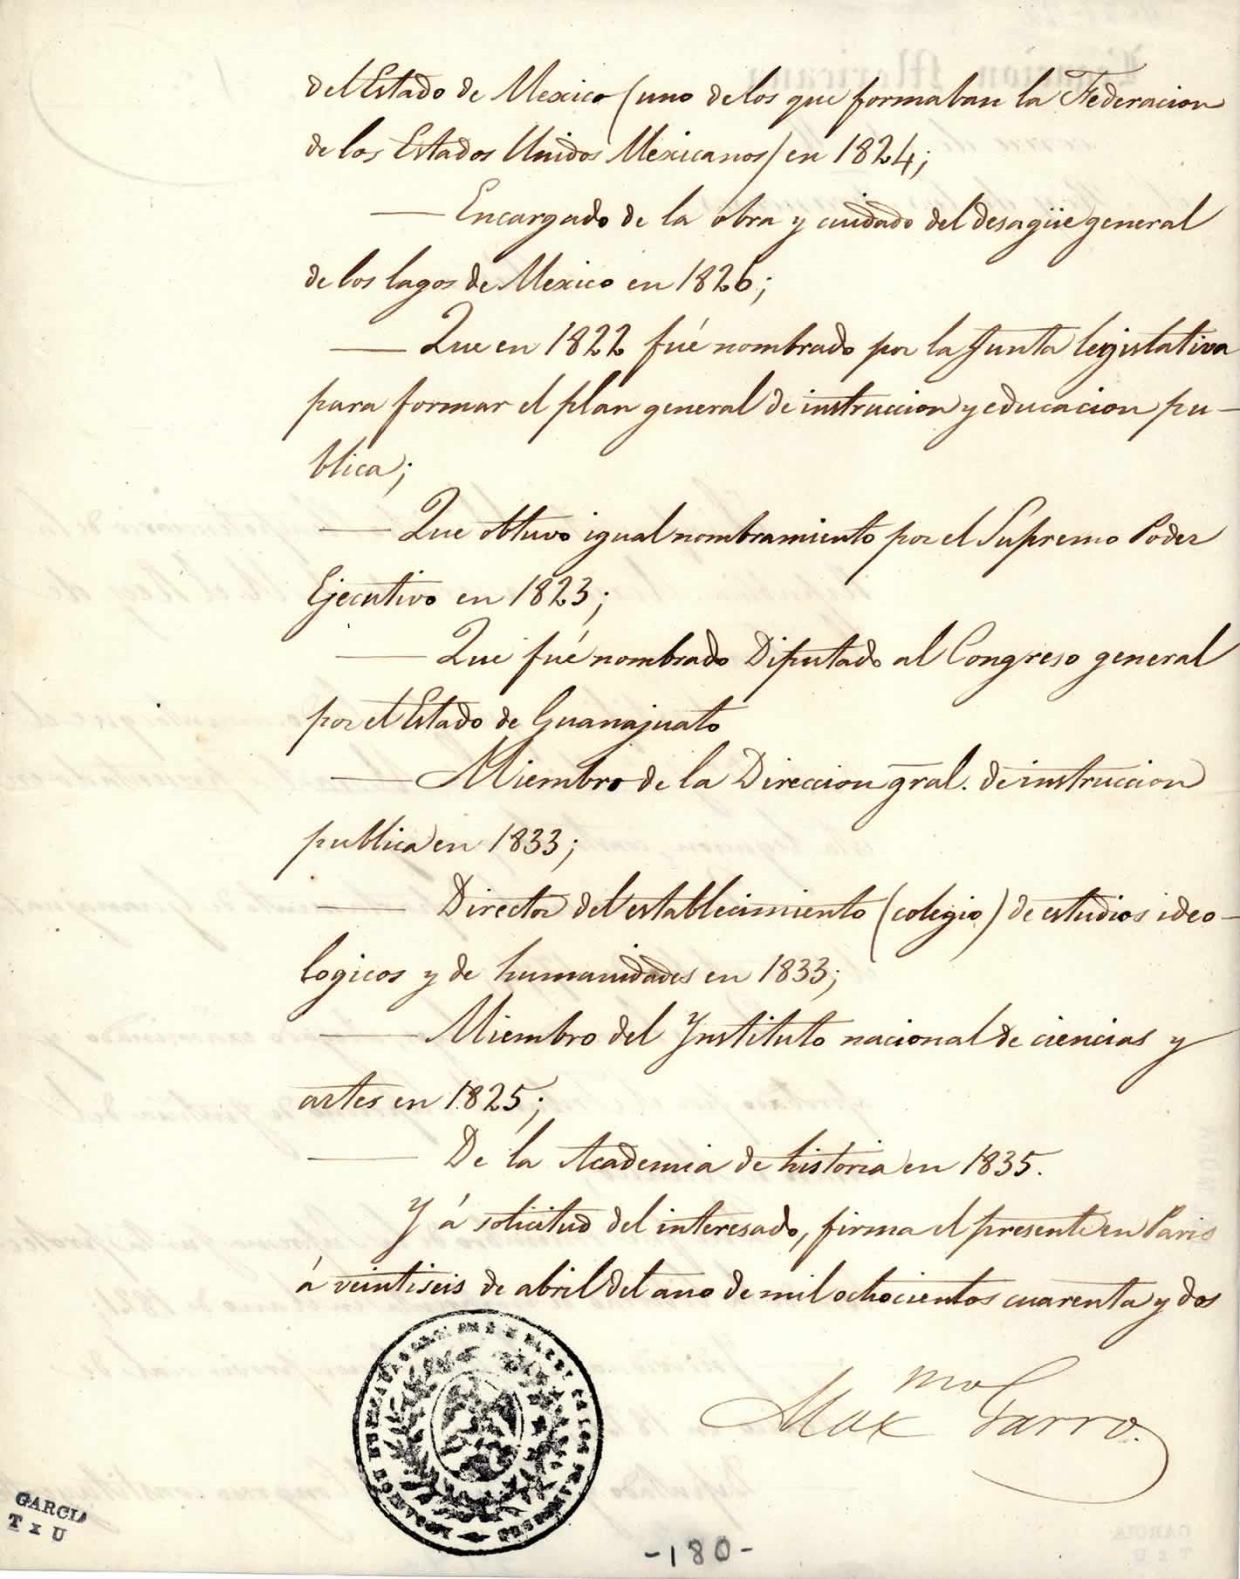 del Estado de Mexico (uno de los que formaban la Federacion
de los Estados Unidos Mexicanos) en 1824;
— Encargado de la obra y cuidado del desagüe general
de los lagos de Mexico en 1826;
— Que en 1822 fué nombrado por la Junta legislativa
para formar el plan general de instruccion y educacion pu-
blica;
— Que obtuvo igual nombramiento por el Supremo Poder
Ejecutivo en 1823;
— Que fué nombrado Diputado al Congreso general
por el Estado de Guanajuato
— Miembro de la Direccion gral. de instruccion
publica en 1833;
— Director del establecimiento (colegio) de estudios ideo-
logicos y de humanidades en 1833;
— Miembro del Ynstituto nacional de ciencias y
artes en 1825;
— De la Academia de historia en 1835.
Y á solicitud del interesado, firma el presente en Paris
á veintiseis de abril del ano de mil ochocientos cuarenta y dos
Maxmo Garro.
GARCIA
T x U
-180-